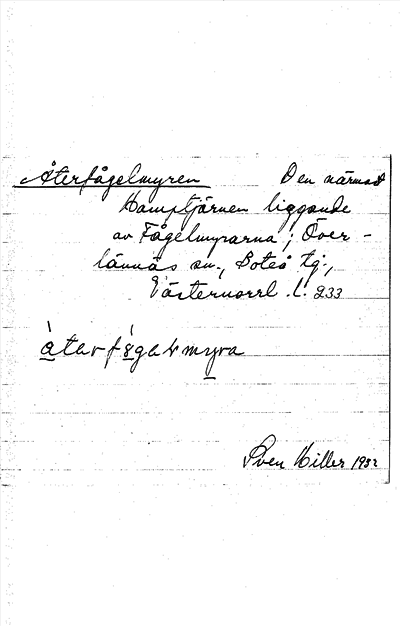 Återfågelmyren Den närmast
Kamptjärnen liggande
av Fågelmyrarna; Över-
lännäs sn., Boteå tg.,
Västernorrl. l. 233
åtarfågalmyra
Sven Hiller 1932